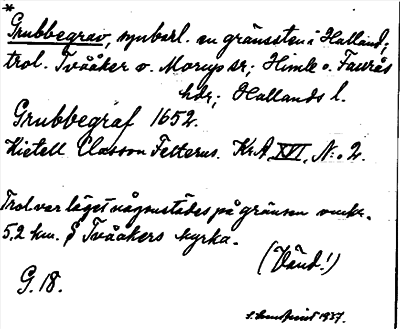 *
Grubbegrav, synbarl. en gränssten i Halland;
trol. Tvååker o. Morup sr; Himle o. Faurås
hdr; Hallands l.
Grubbegraf 1652.
Kietell Classon Felterus. KrA XVI, N:o 2.
Trol var läget någonstädes på gränsen omkr.
5,2 km. S Tvååkers kyrka.
(Vänd!)
G. 18.
1937.